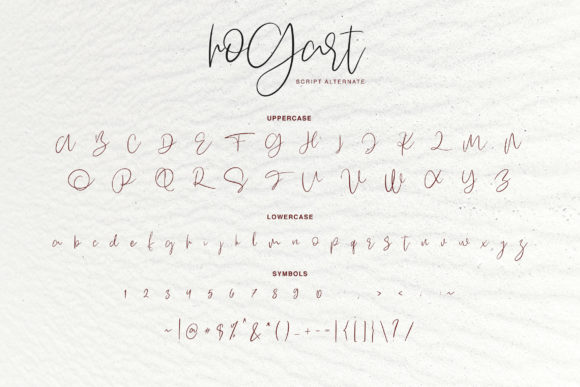 hogart
SCRIPT ALTERNATE
UPPERCASE
A B C D E F G H I J K L M N
O P Q R S T U V W X Y Z
LOWERCASE
a b c d e f g h i j k l m n o p q r s t u v w x y z
SYMBOLS
1 2 3 4 5 6 7 8 9 0 . , > < , : ~
~ | @ # $ % ^ & * ( ) _ + - = | { [ ] } \ ? /